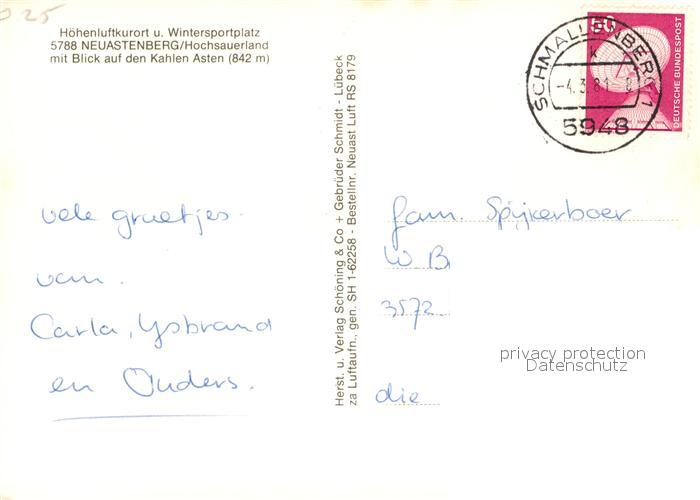 025
Höhenluftkurort u. Wintersportplatz
5788 NEUASTENBERG/Hochsauerland
mit Blick auf den Kahlen Asten (842 m)
vele groetjes.
van.
Carla, Ysbrand
en Ouders.
Herst. u. Verlag Schöning & Co + Gebrüder Schmidt - Lübeck
za Luftaufn., gen. SH 1-62258 - Bestellnr. Neuast Luft RS 8179
50
DEUTSCHE BUNDESPOST
SCHMALLENBERG 1
k
-4.3.8
5948
fam. Spijkerboer
W B
3572
die
privacy protection
Datenschutz